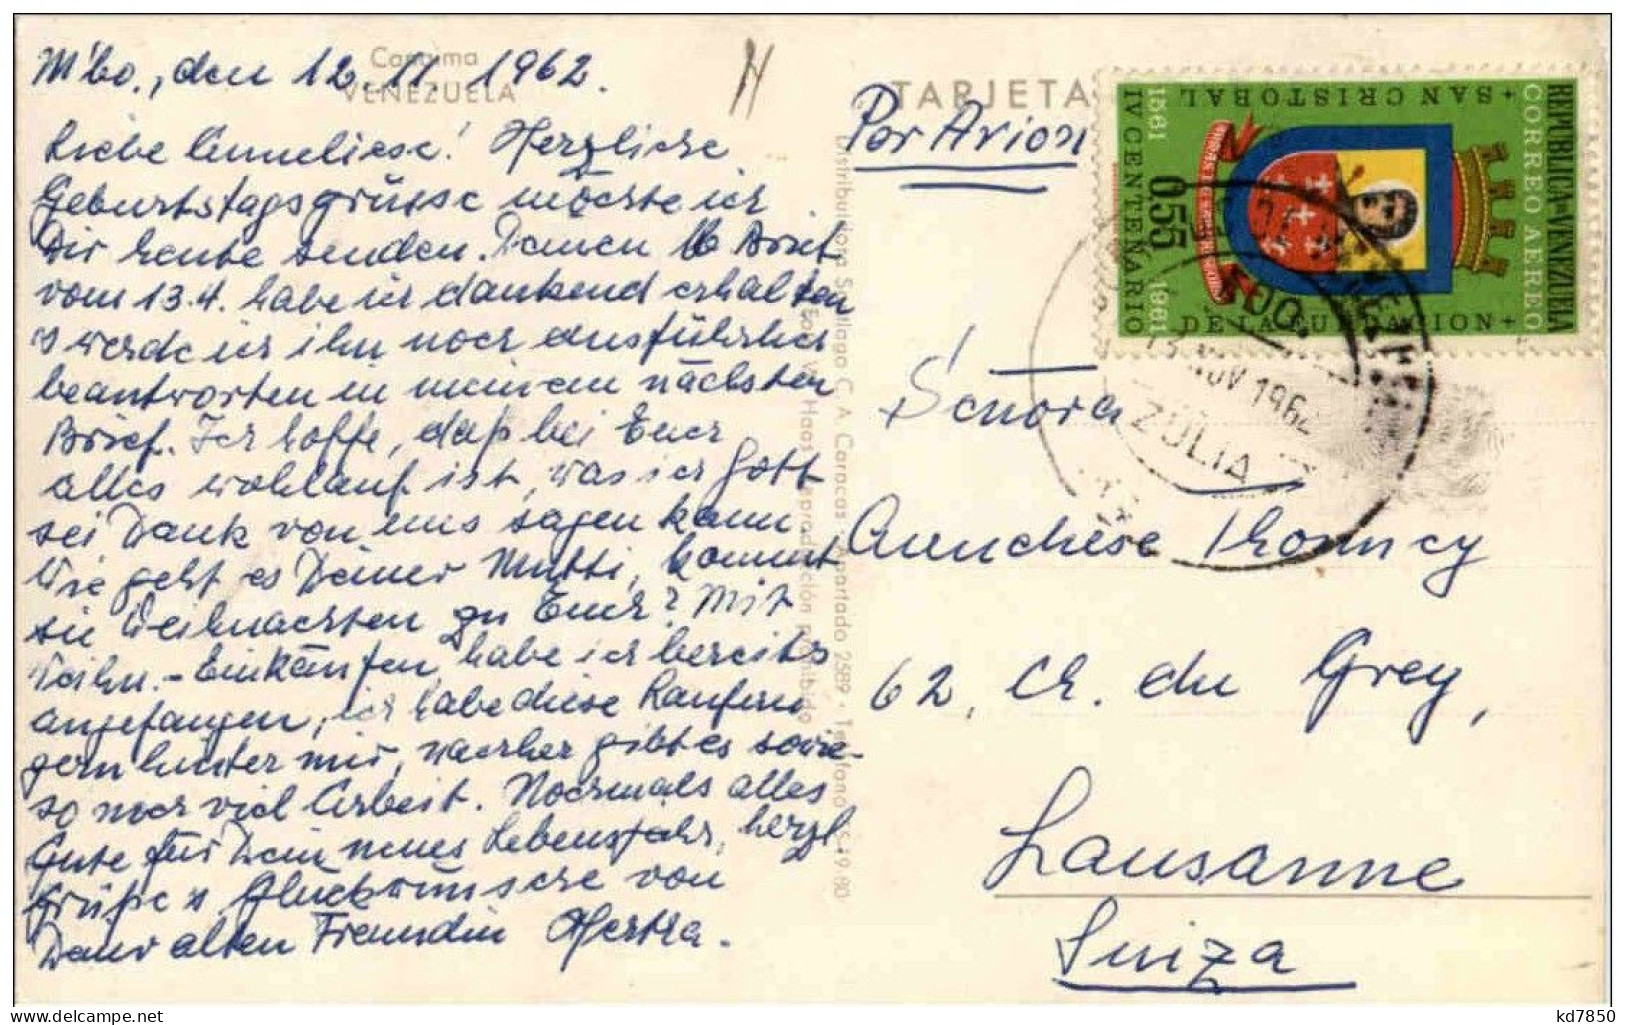 Canaima
VENEZUELA
M'bo., den 12.11.1962.
Liebe Anneliese! Herzliche
Geburtstagsgrüsse möchte ich
Dir heute senden. Deinen lb Brief
vom 13.4. habe ich dankend erhalten
u werde ich ihn noch ausführlicher
beantworten in meinem nächsten
Brief. Ich hoffe, daß bei Euch
alles wohlauf ist, was ich Gott
sei Dank von uns sagen kann
Wie geht es Deiner Mutti, kommt
sie Weihnachten zu Euch? Mit
Weihn.-Einkäufen habe ich bereits
angefangen, ich habe diese Lauferei
gern hinter mir, nachher gibt es sowie-
so noch viel Arbeit. Nochmals alles
Gute für Dein neues Lebensjahr, herzl
Grüße u Glückwünsche von
Deiner alten Freundin Hertha.
TARJETA
Por Avion
REPUBLICA-VENEZUELA
CORREO AEREO
+ SAN CRISTOBAL
1561
IV CENTENARIO
1961
DE LA FUNDACION +
0,55
13 NOV 1962
ZULIA
Señora
Thonney
62, Ch. du Grey,
Lausanne
Suiza
Distribuidora Santiago C. A. Caracas - Apartado 2589 - Teléfono
Reproducción prohibida
kd7850